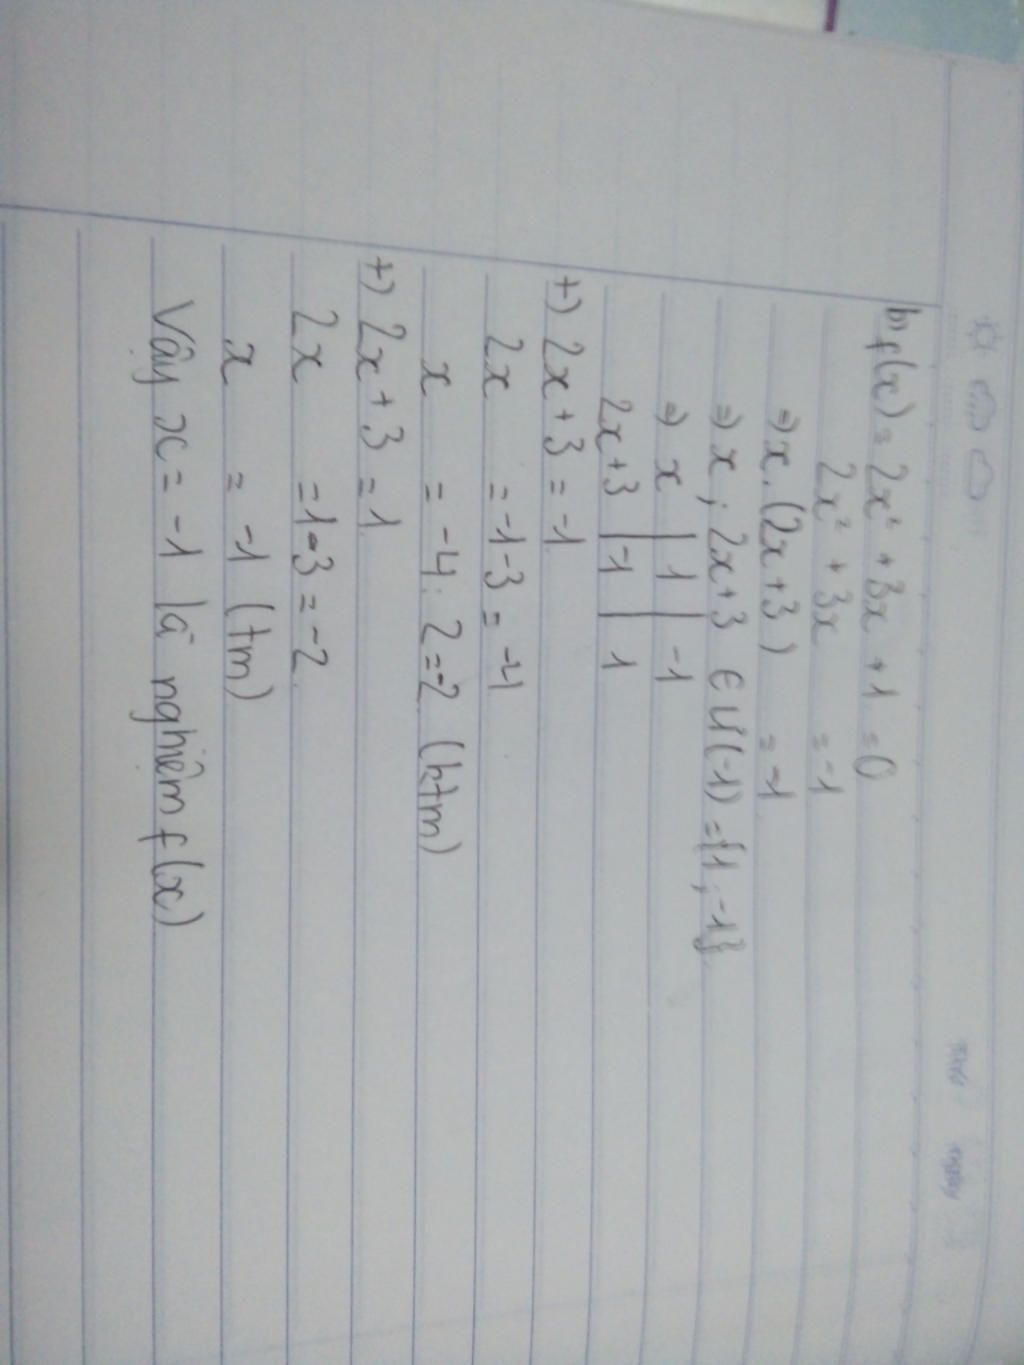 b, f(x) = 2x² + 3x + 1 = 0
2x² + 3x = -1
=> x.(2x+3) = -1
=> x ; 2x+3 ∈ Ư(-1) = {1 ; -1}
=> x | 1 | -1
2x+3 | -1 | 1
+) 2x + 3 = -1
2x = -1-3 = -4
x = -4 : 2 = -2 (ktm)
+) 2x + 3 = 1
2x = 1-3 = -2
x = -1 (tm)
Vậy x = -1 là nghiệm f(x)